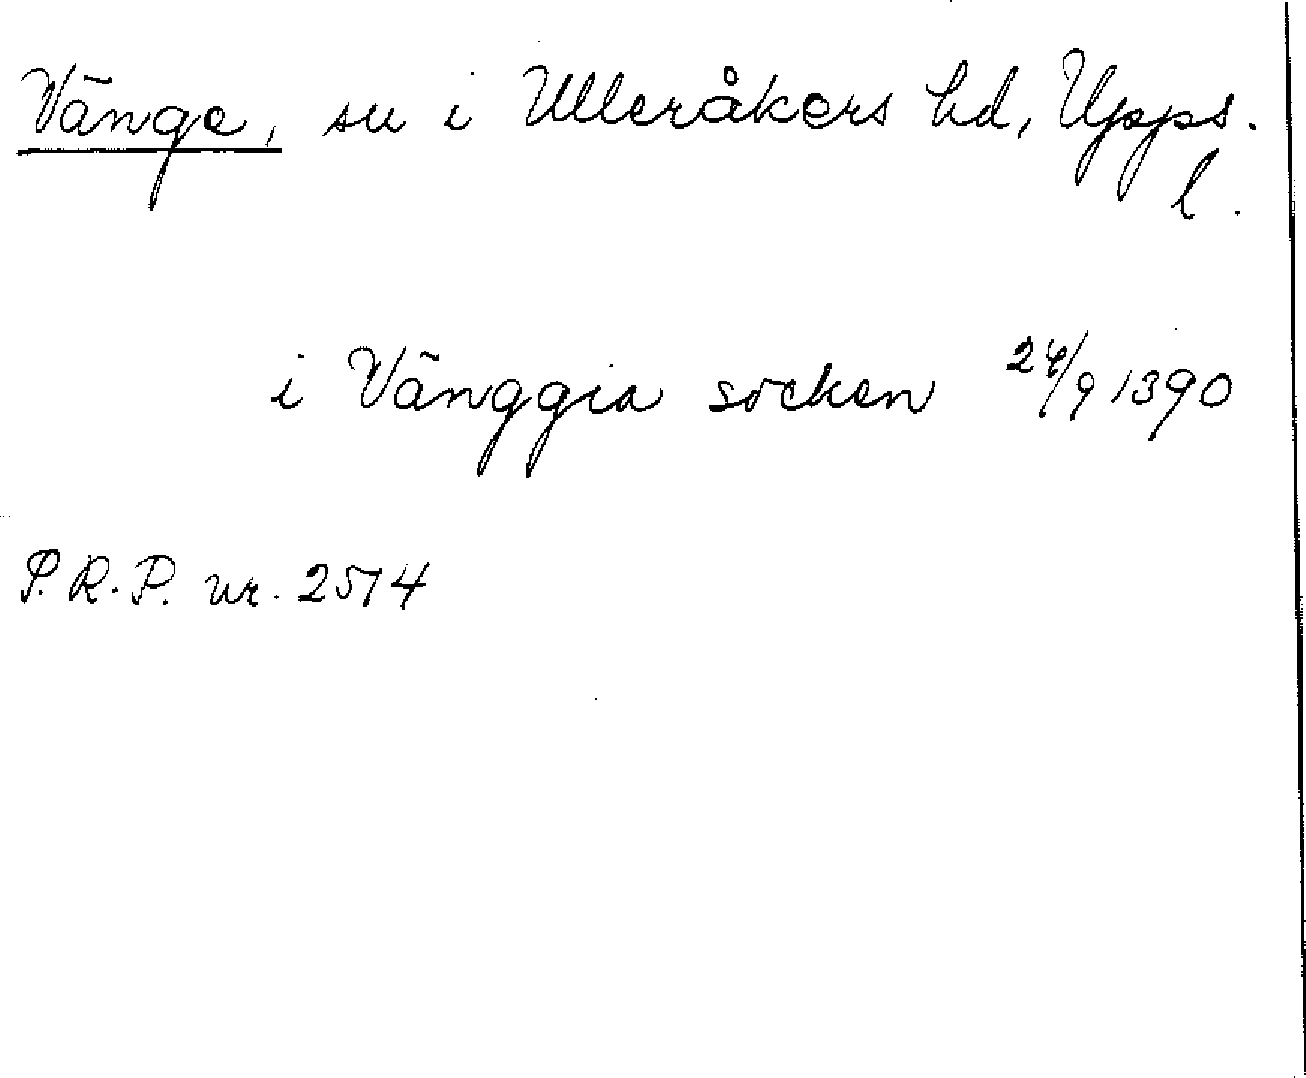 Vänge, sn i Ulleråkers hd, Upps.
l.
i Vänggia socken 24/9 1390
P.R.P. nr. 2514